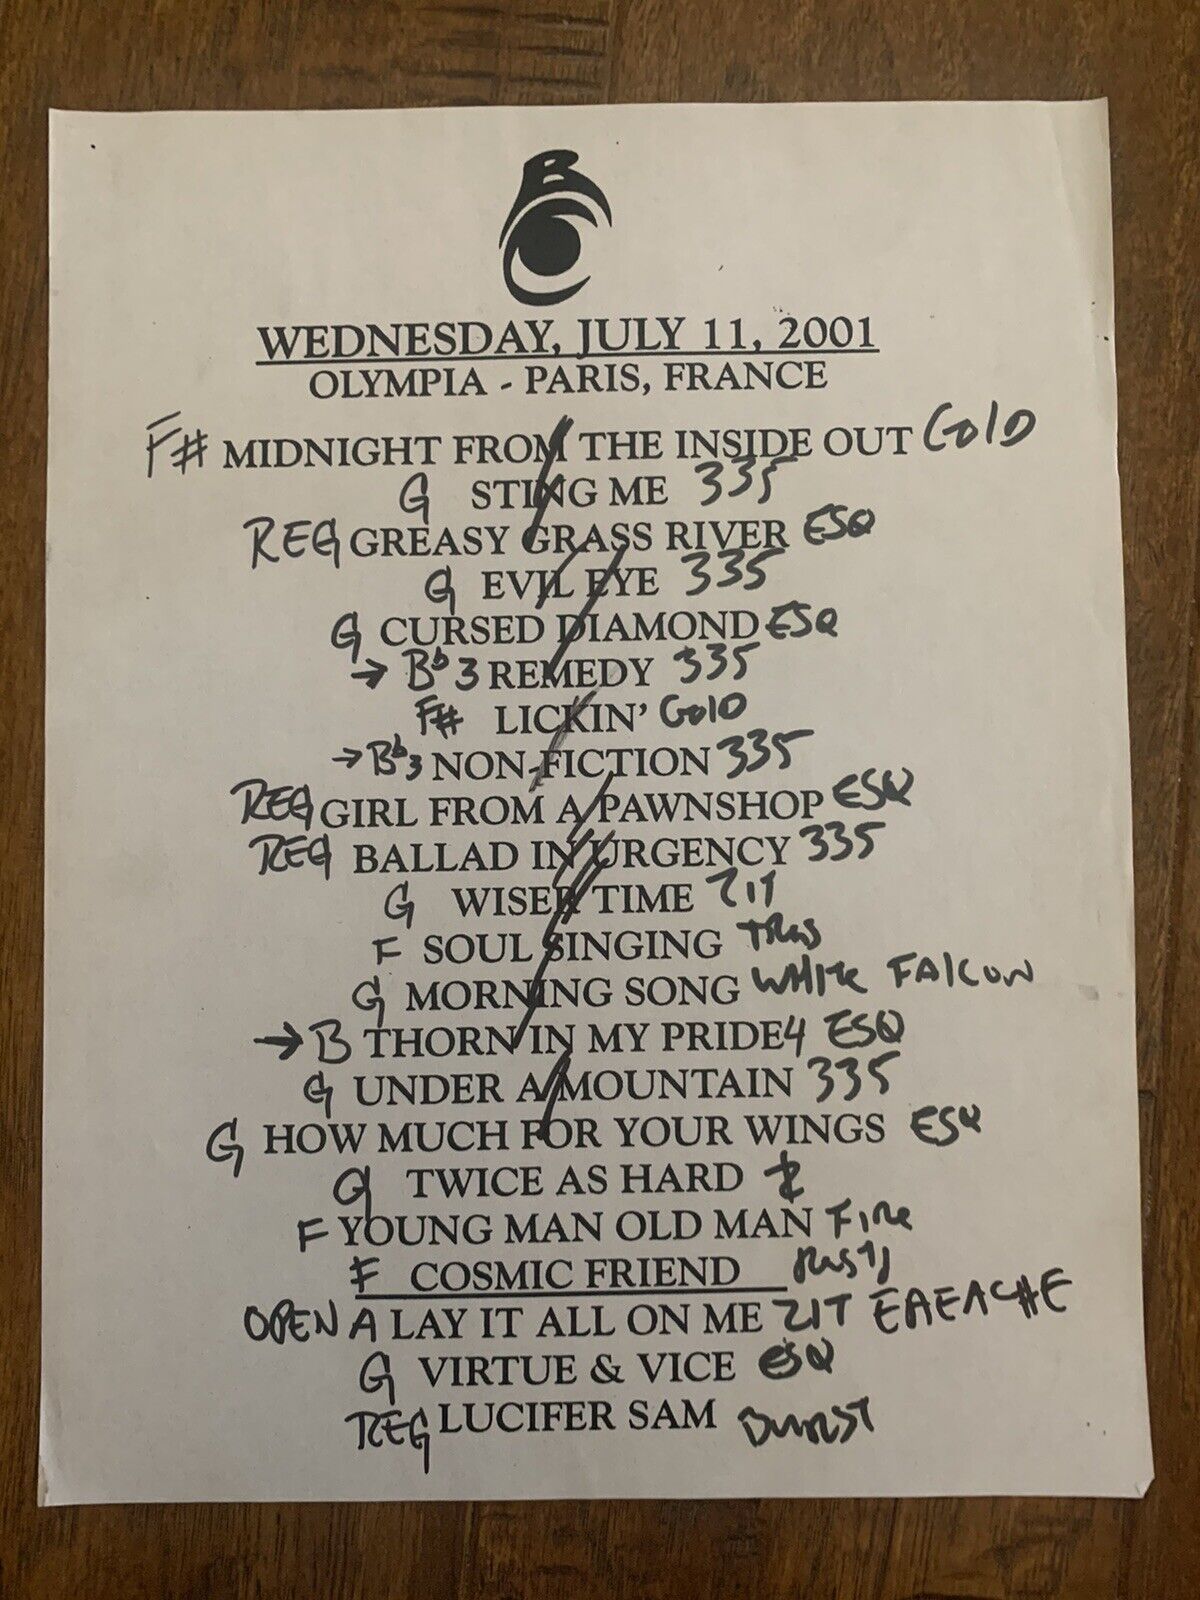 BC
WEDNESDAY, JULY 11, 2001
OLYMPIA - PARIS, FRANCE
F# MIDNIGHT FROM THE INSIDE OUT GOLD
G STING ME 335
REG GREASY GRASS RIVER ESQ
G EVIL EYE 335
G CURSED DIAMOND ESQ
→ Bb 3 REMEDY 335
F# LICKIN' GOLD
→ Bb3 NON-FICTION 335
REG GIRL FROM A PAWNSHOP ESQ
REG BALLAD IN URGENCY 335
G WISER TIME ZIT
F SOUL SINGING
G MORNING SONG WHITE FALCON
→ B THORN IN MY PRIDE4 ESQ
G UNDER A MOUNTAIN 335
G HOW MUCH FOR YOUR WINGS ESQ
G TWICE AS HARD
F YOUNG MAN OLD MAN FIRE
F COSMIC FRIEND
OPEN A LAY IT ALL ON ME ZIT EAEACHE
G VIRTUE & VICE ESQ
REG LUCIFER SAM BURST